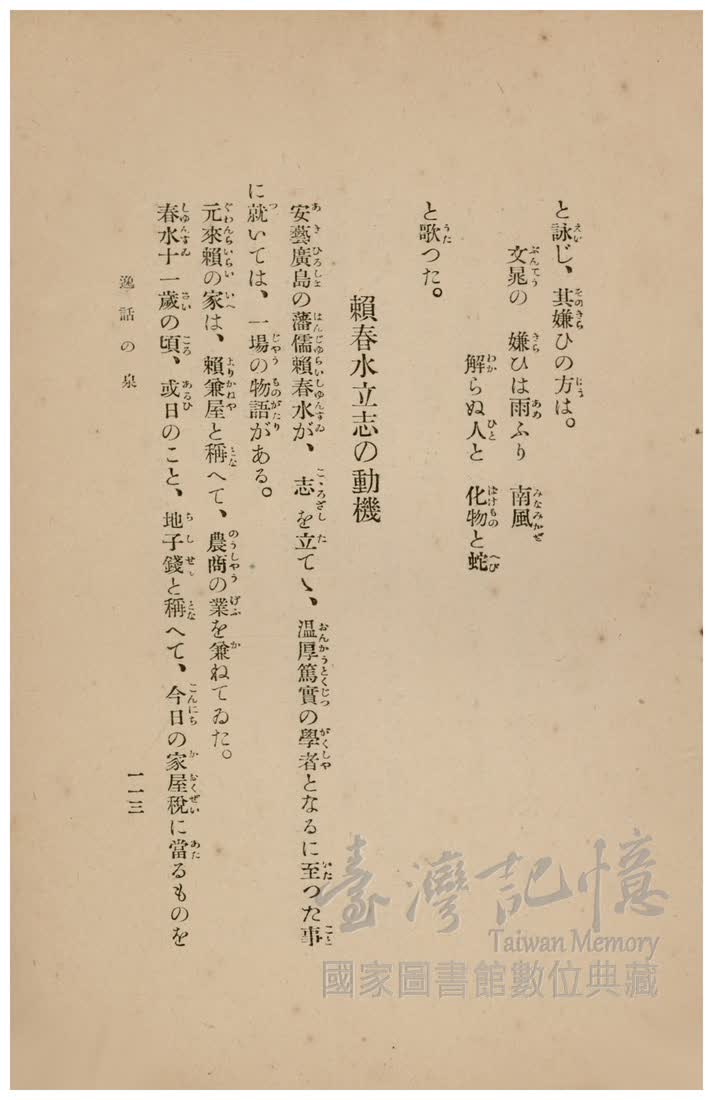 と詠じ、其嫌ひの方は。
文晁の　嫌ひは雨ふり　南風
解らぬ人と　化物と蛇
と歌つた。
賴春水立志の動機
安藝廣島の藩儒賴春水が、志を立てゝ、温厚篤實の學者となるに至つた事
に就いては、一場の物語がある。
元來賴の家は、賴兼屋と稱へて、農商の業を兼ねてゐた。
春水十一歲の頃、或日のこと、地子錢と稱へて、今日の家屋稅に當るものを
逸話の泉
一一三
臺灣記憶
Taiwan Memory
國家圖書館數位典藏